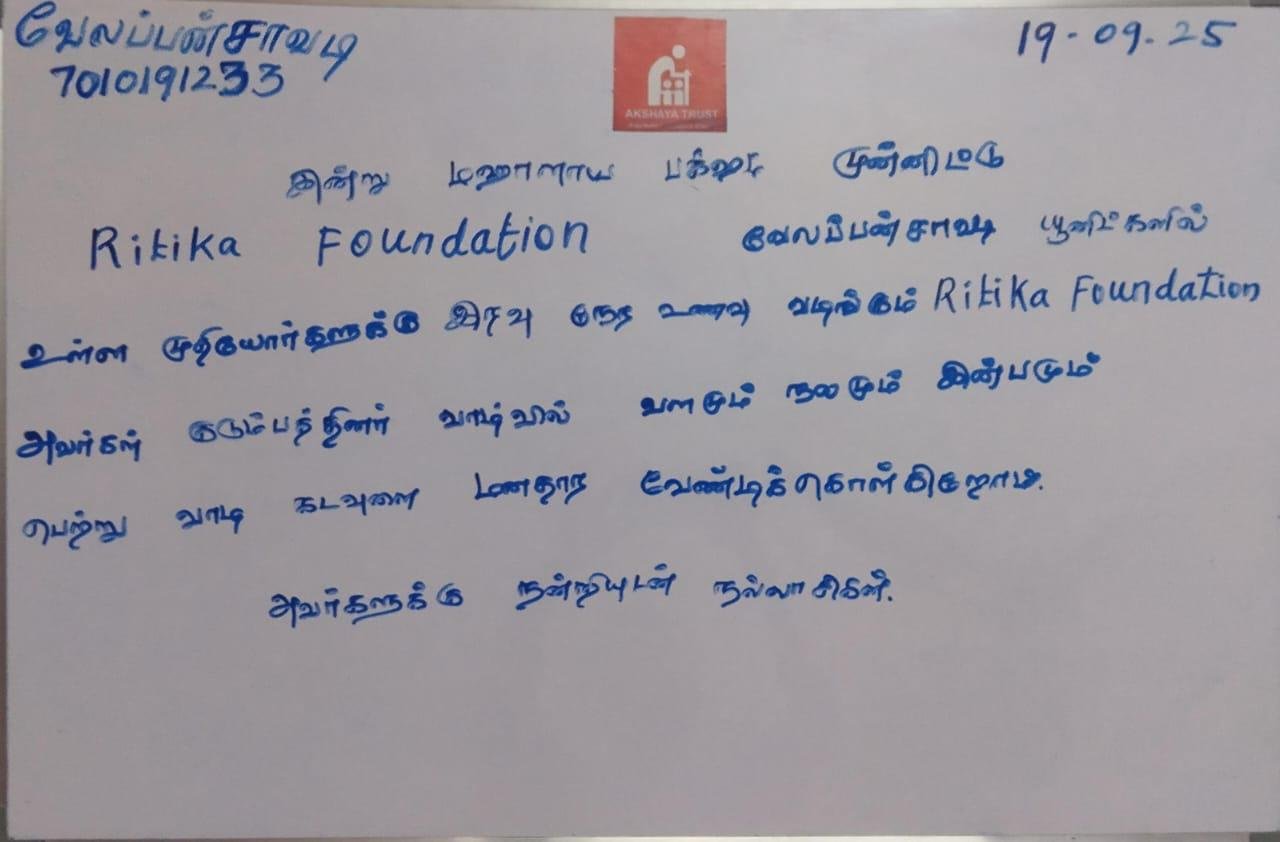 வேலப்பன்சாவடி
7010191233
19-09-25
AKSHAYA TRUST
இன்று மஹாளாய பக்ஷம் முன்னிட்டு
Ritika Foundation வேலப்பன்சாவடி யூனிட்களில்
உள்ள முதியோர்களுக்கு இரவு நேர உணவு வழங்கும் Ritika Foundation
அவர்கள் குடும்பத்தினர் வாழ்வில் வளமும் நலமும் இன்பமும்
பெற்று வாழ கடவுளை மனதார வேண்டிக்கொள்கிறோம்.
அவர்களுக்கு நன்றியுடன் நல்லாசிகள்.